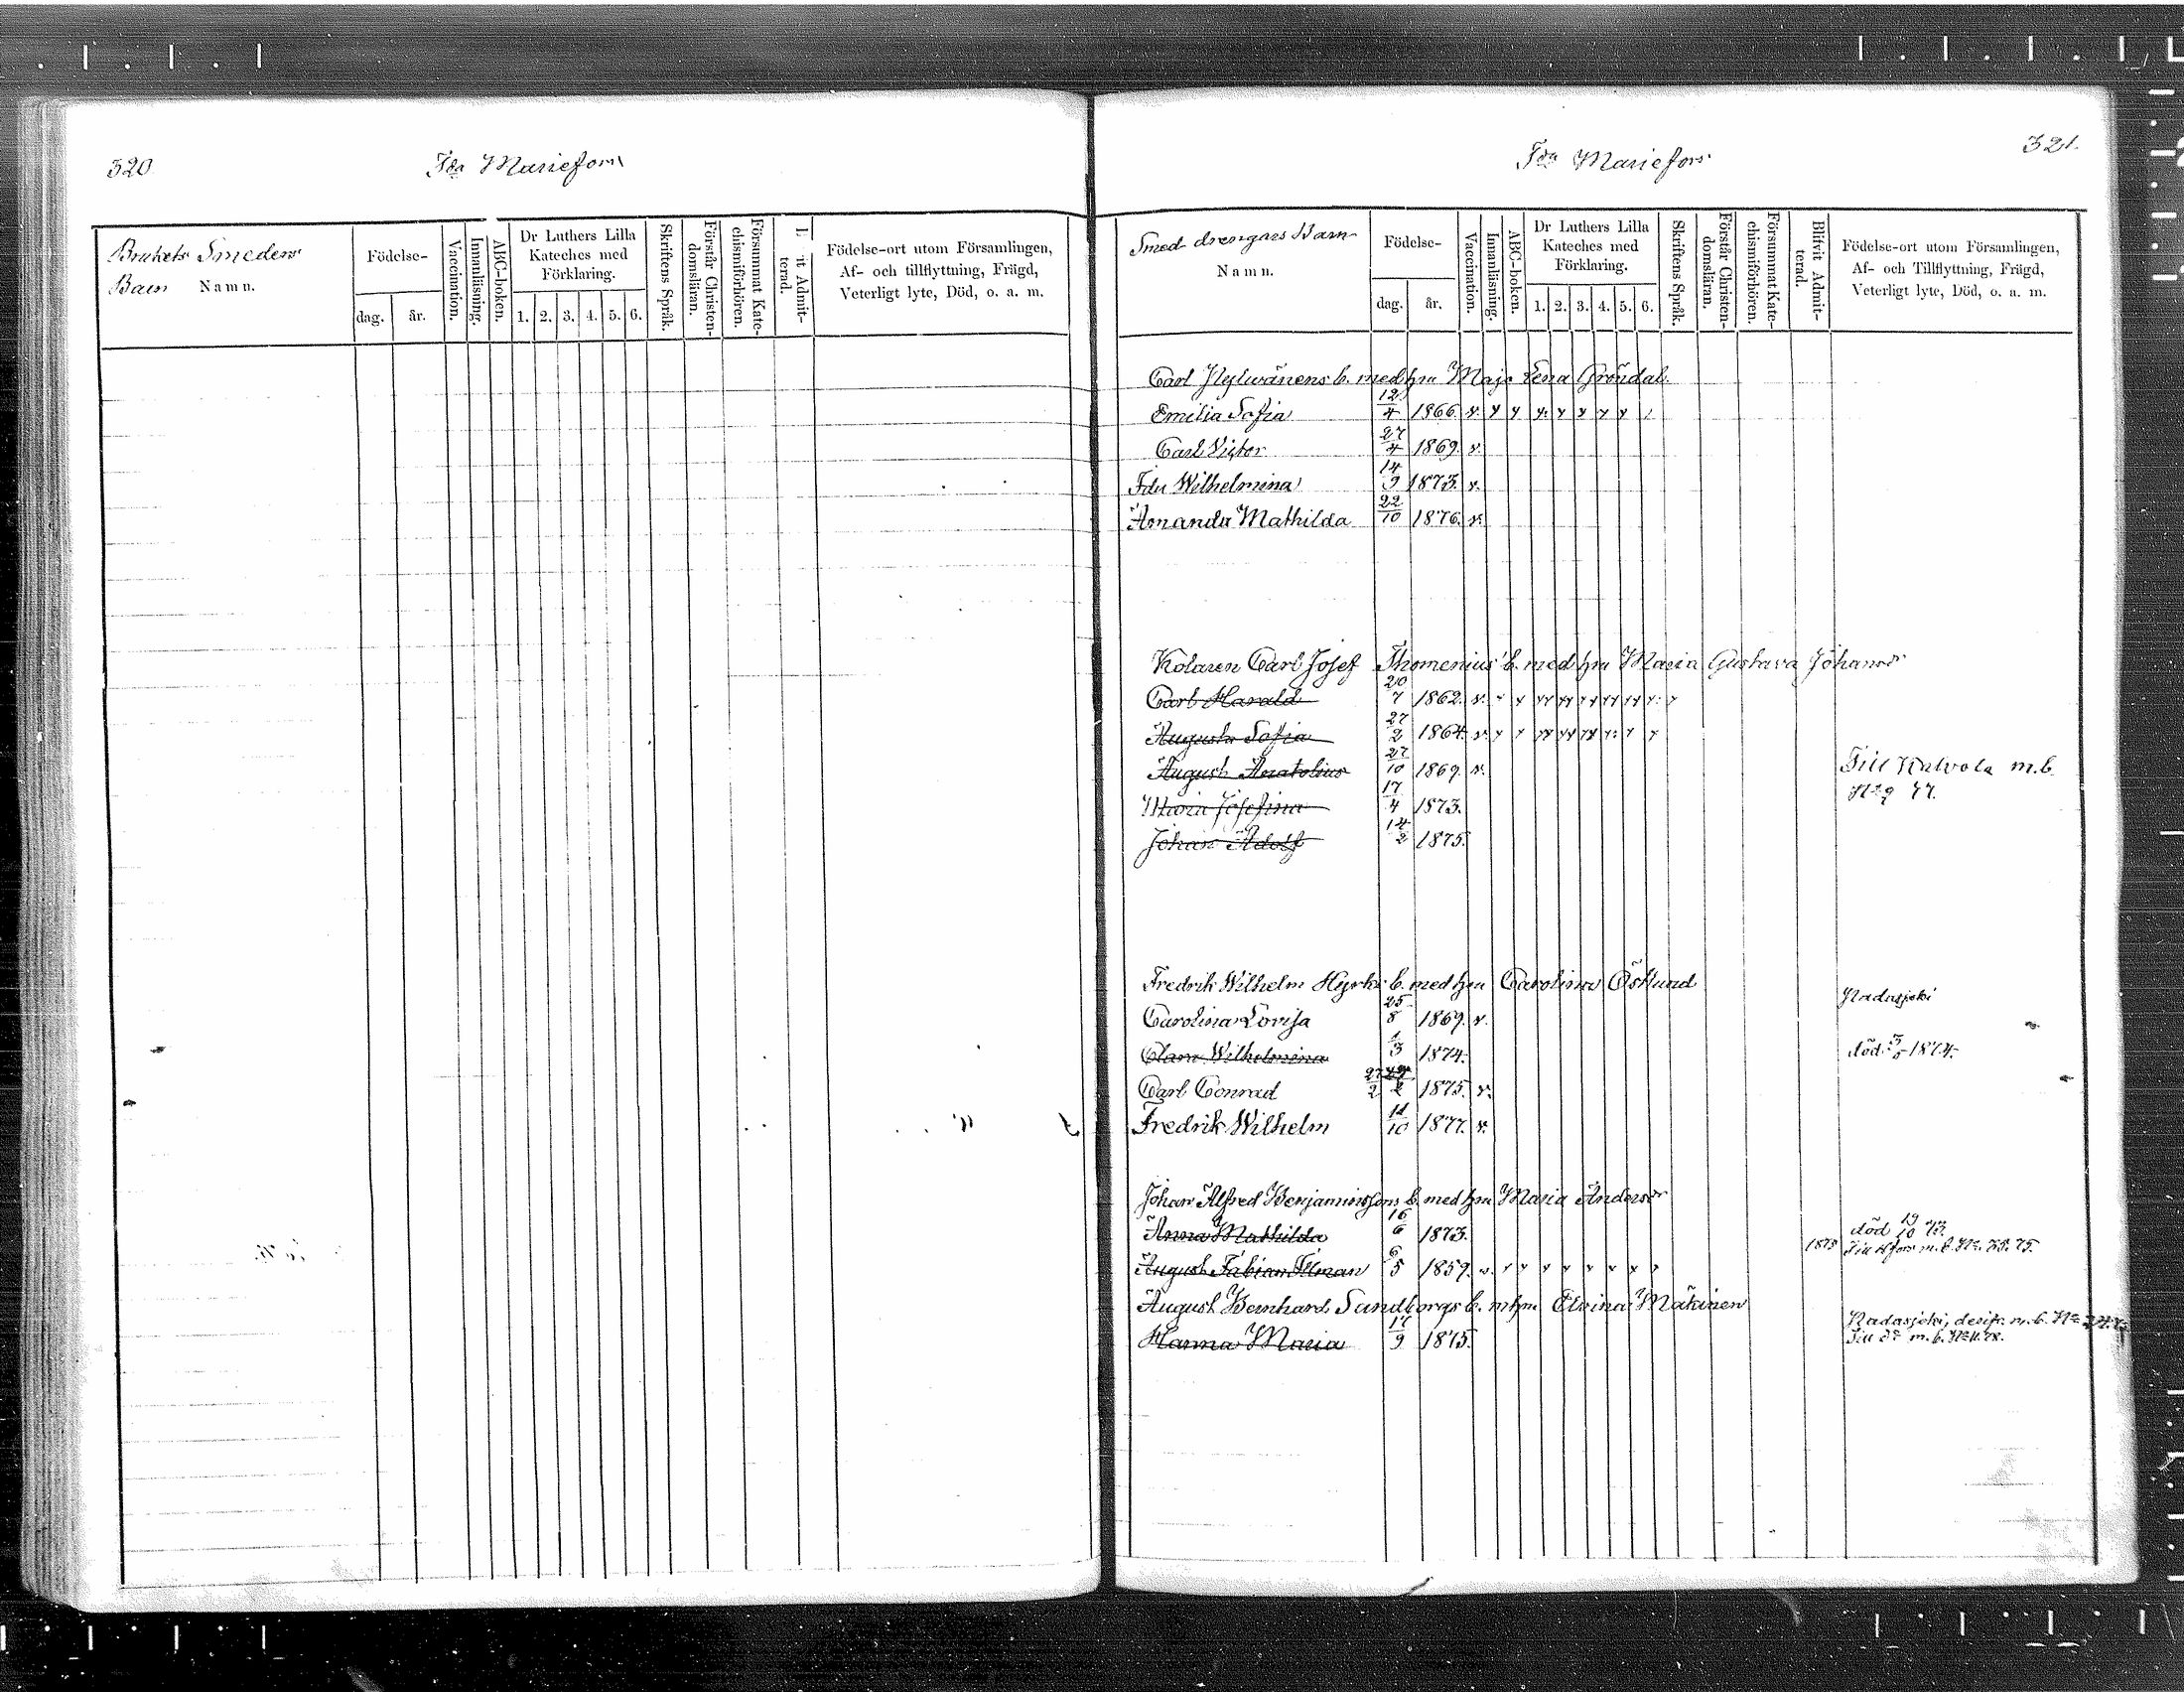 320
Ida Mariefors
Brukets Smeders
Barn Namn.
Födelse-
dag. år.
Vaccination.
Innanläsning.
ABC-boken.
Dr Luthers Lilla
Kateches med
Förklaring.
1. 2. 3. 4. 5. 6.
Skriftens Språk.
Förstår Christen-
domsläran.
Försummat Kate-
chismiförhören.
it Admit-
terad.
Födelse-ort utom Församlingen,
Af- och tillflyttning, Frägd,
Veterligt lyte, Död, o. a. m.
321.
Ida Mariefors
Smed drengars Barn
Namn.
Födelse-
dag. år.
Vaccination.
Innanläsning.
ABC-boken.
Dr Luthers Lilla
Kateches med
Förklaring.
1. 2. 3. 4. 5. 6.
Skriftens Språk.
Förstår Christen-
domsläran.
Försummat Kate-
chismiförhören.
Blifvit Admit-
terad.
Födelse-ort utom Församlingen,
Af- och Tillflyttning, Frägd,
Veterligt lyte, Död, o. a. m.
Carl b. med hu Maja Lena Gröndal.
Emilia Sofia 12/4 1866. v.
Carl Victor 27/4 1869. v.
Ida Wilhelmina 14/9 1873. v.
Amanda Mathilda 22/10 1876. v.
Kolaren Carl Josef Thomenius' b. med hu Maria Gustava Johansdr
Carl Harald 20/7 1862. v.
Augusta Sofia 27/2 1864. v.
August Anatolius 27/10 1869. v. Till Kalvola m.b.
Maria Josefina 17/4 1873. 77.
Johan Adolf 14/2 1875.
Fredrik Wilhelm b. med hu Carolina Östlund
Carolina Lovisa 25/8 1869. v.
Clara Wilhelmina 1/3 1874. död 1874.
Carl Conrad 27/2 1875. v.
Fredrik Wilhelm 11/10 1877. v.
Johan Alfred Benjaminssons b. med hu Maria Andersdr
Anna Mathilda 16/6 1873. död 19/10 73.
August Fabian 6/5 1859. v. 1875 Till m.b. 75.
August Bernhard Sundbergs b. m hu Elvina Mäkinen
Hanna Maria 17/9 1875. Till do m.b. 78.